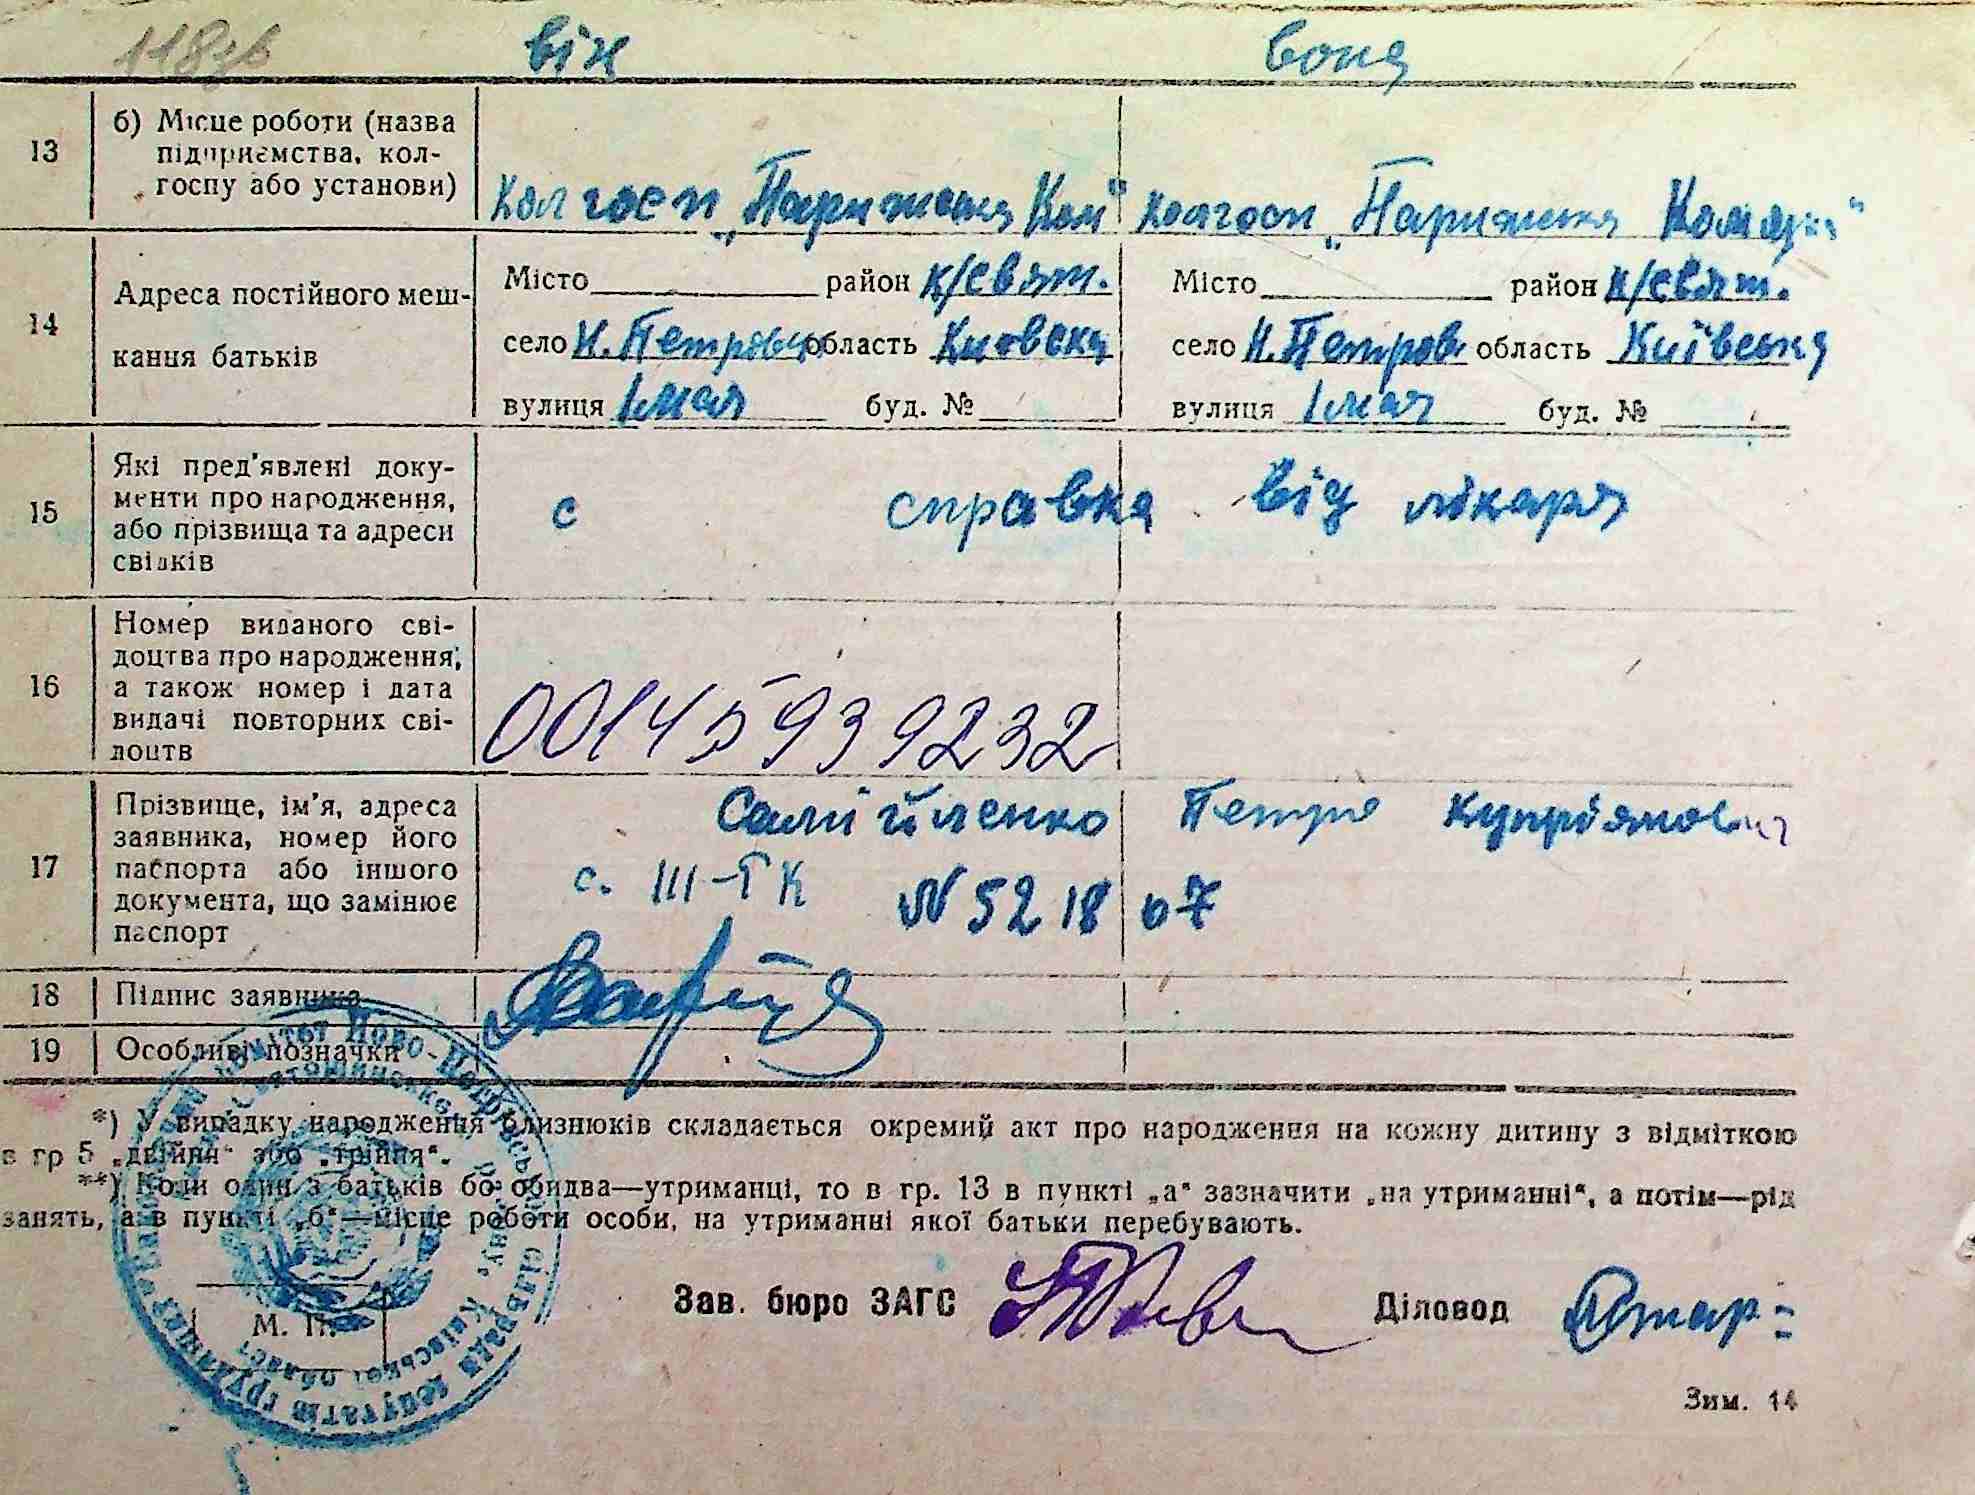 118зв він вона
13 б) Місце роботи (назва підприємства, колгоспу або установи)
колгосп „Парижська Ком“ колгосп „Парижська Комуна“
14 Адреса постійного мешкання батьків
Місто район К/Свят. Місто район К/Свят.
село Н. Петровці область Киевска село Н. Петров область Київська
вулиця 1 мая буд. № вулиця 1 мая буд. №
15 Які пред'явлені документи про народження, або прізвища та адреси свідків
с справка від лікаря
16 Номер виданого свідоцтва про народження, а також номер і дата видачі повторних свідоцтв
00145939232
17 Прізвище, ім'я, адреса заявника, номер його паспорта або іншого документа, що замінює паспорт
Самійленко Петро Купріянович
с. III-ТК № 521807
18 Підпис заявника
19 Особливі позначки
*) У випадку народження близнюків складається окремий акт про народження на кожну дитину з відміткою
в гр 5 „двійня“ або „трійня“.
**) Коли один з батьків бо обидва—утриманці, то в гр. 13 в пункті „а“ зазначити „на утриманні“, а потім—рід
занять, а в пункті „б“—місце роботи особи, на утриманні якої батьки перебувають.
Зав. бюро ЗАГС Діловод
М. П.
Зим. 14